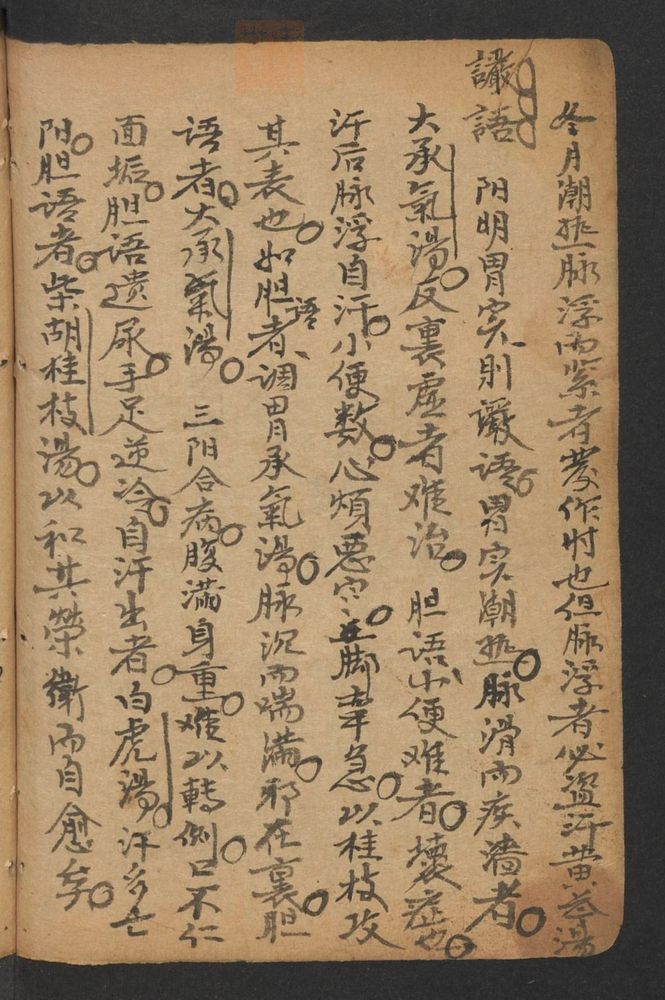 冬月潮热脉浮而紧者發作时也但脉浮者必盗汗黄芩湯
讝語 阳明胃实則讝語胃实潮热脉滑而疾濇者
大承氣湯反裏虚者难治 胆語小便难者壞症也
汗后脉浮自汗小便数心煩恶寒脚挛急以桂枝攻
其表也如胆語者調胃承氣湯脉沉而喘滿邪在裏胆
语者大承氣湯 三阳合病腹滿身重难以轉側口不仁
面垢胆语遗尿手足逆冷自汗出者白虎湯汗多亡
阳胆语者柴胡桂枝湯以和其榮衛而自愈矣